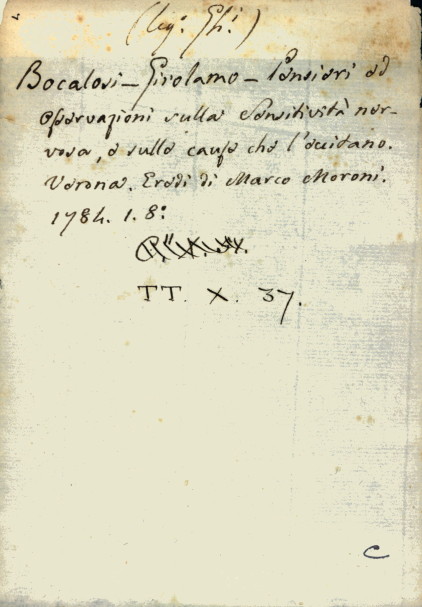 (Leg: Ghi:)
Bocalosi - Girolamo - Pensieri ed
osservazioni sulla Sensitività ner-
vosa, e sulle cause che l'eccitano.
Verona. Eredi di Marco Moroni.
1784. 1. 8:
TT. X. 37.
C